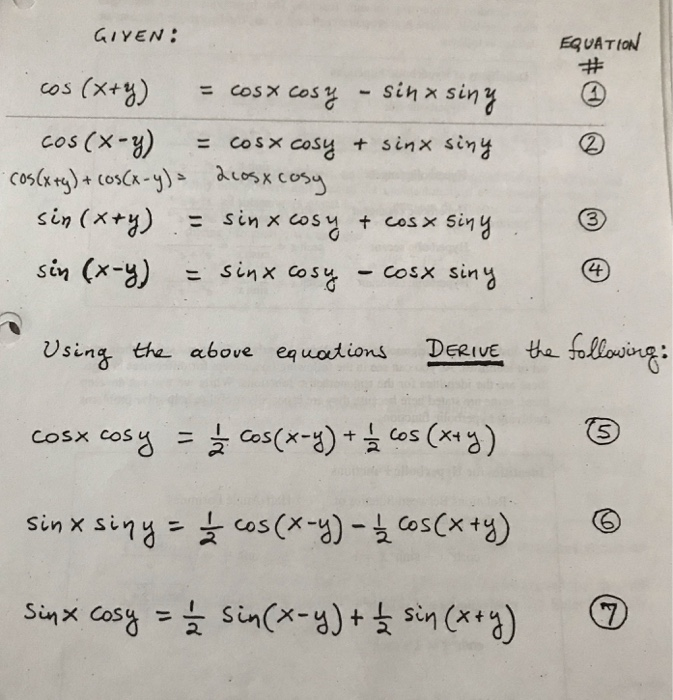 GIVEN:
EQUATION
#
cos (x+y) = cosx cosy - sin x siny ①
cos (x-y) = cosx cosy + sinx siny ②
cos(x+y) + cos(x-y) = 2cosx cosy
sin (x+y) = sin x cosy + cosx siny ③
sin (x-y) = sinx cosy - cosx siny ④
Using the above equations DERIVE the following:
cosx cosy = 1/2 cos(x-y) + 1/2 cos (x+y) ⑤
sinx siny = 1/2 cos(x-y) - 1/2 cos(x+y) ⑥
Sinx cosy = 1/2 sin(x-y) + 1/2 sin (x+y) ⑦